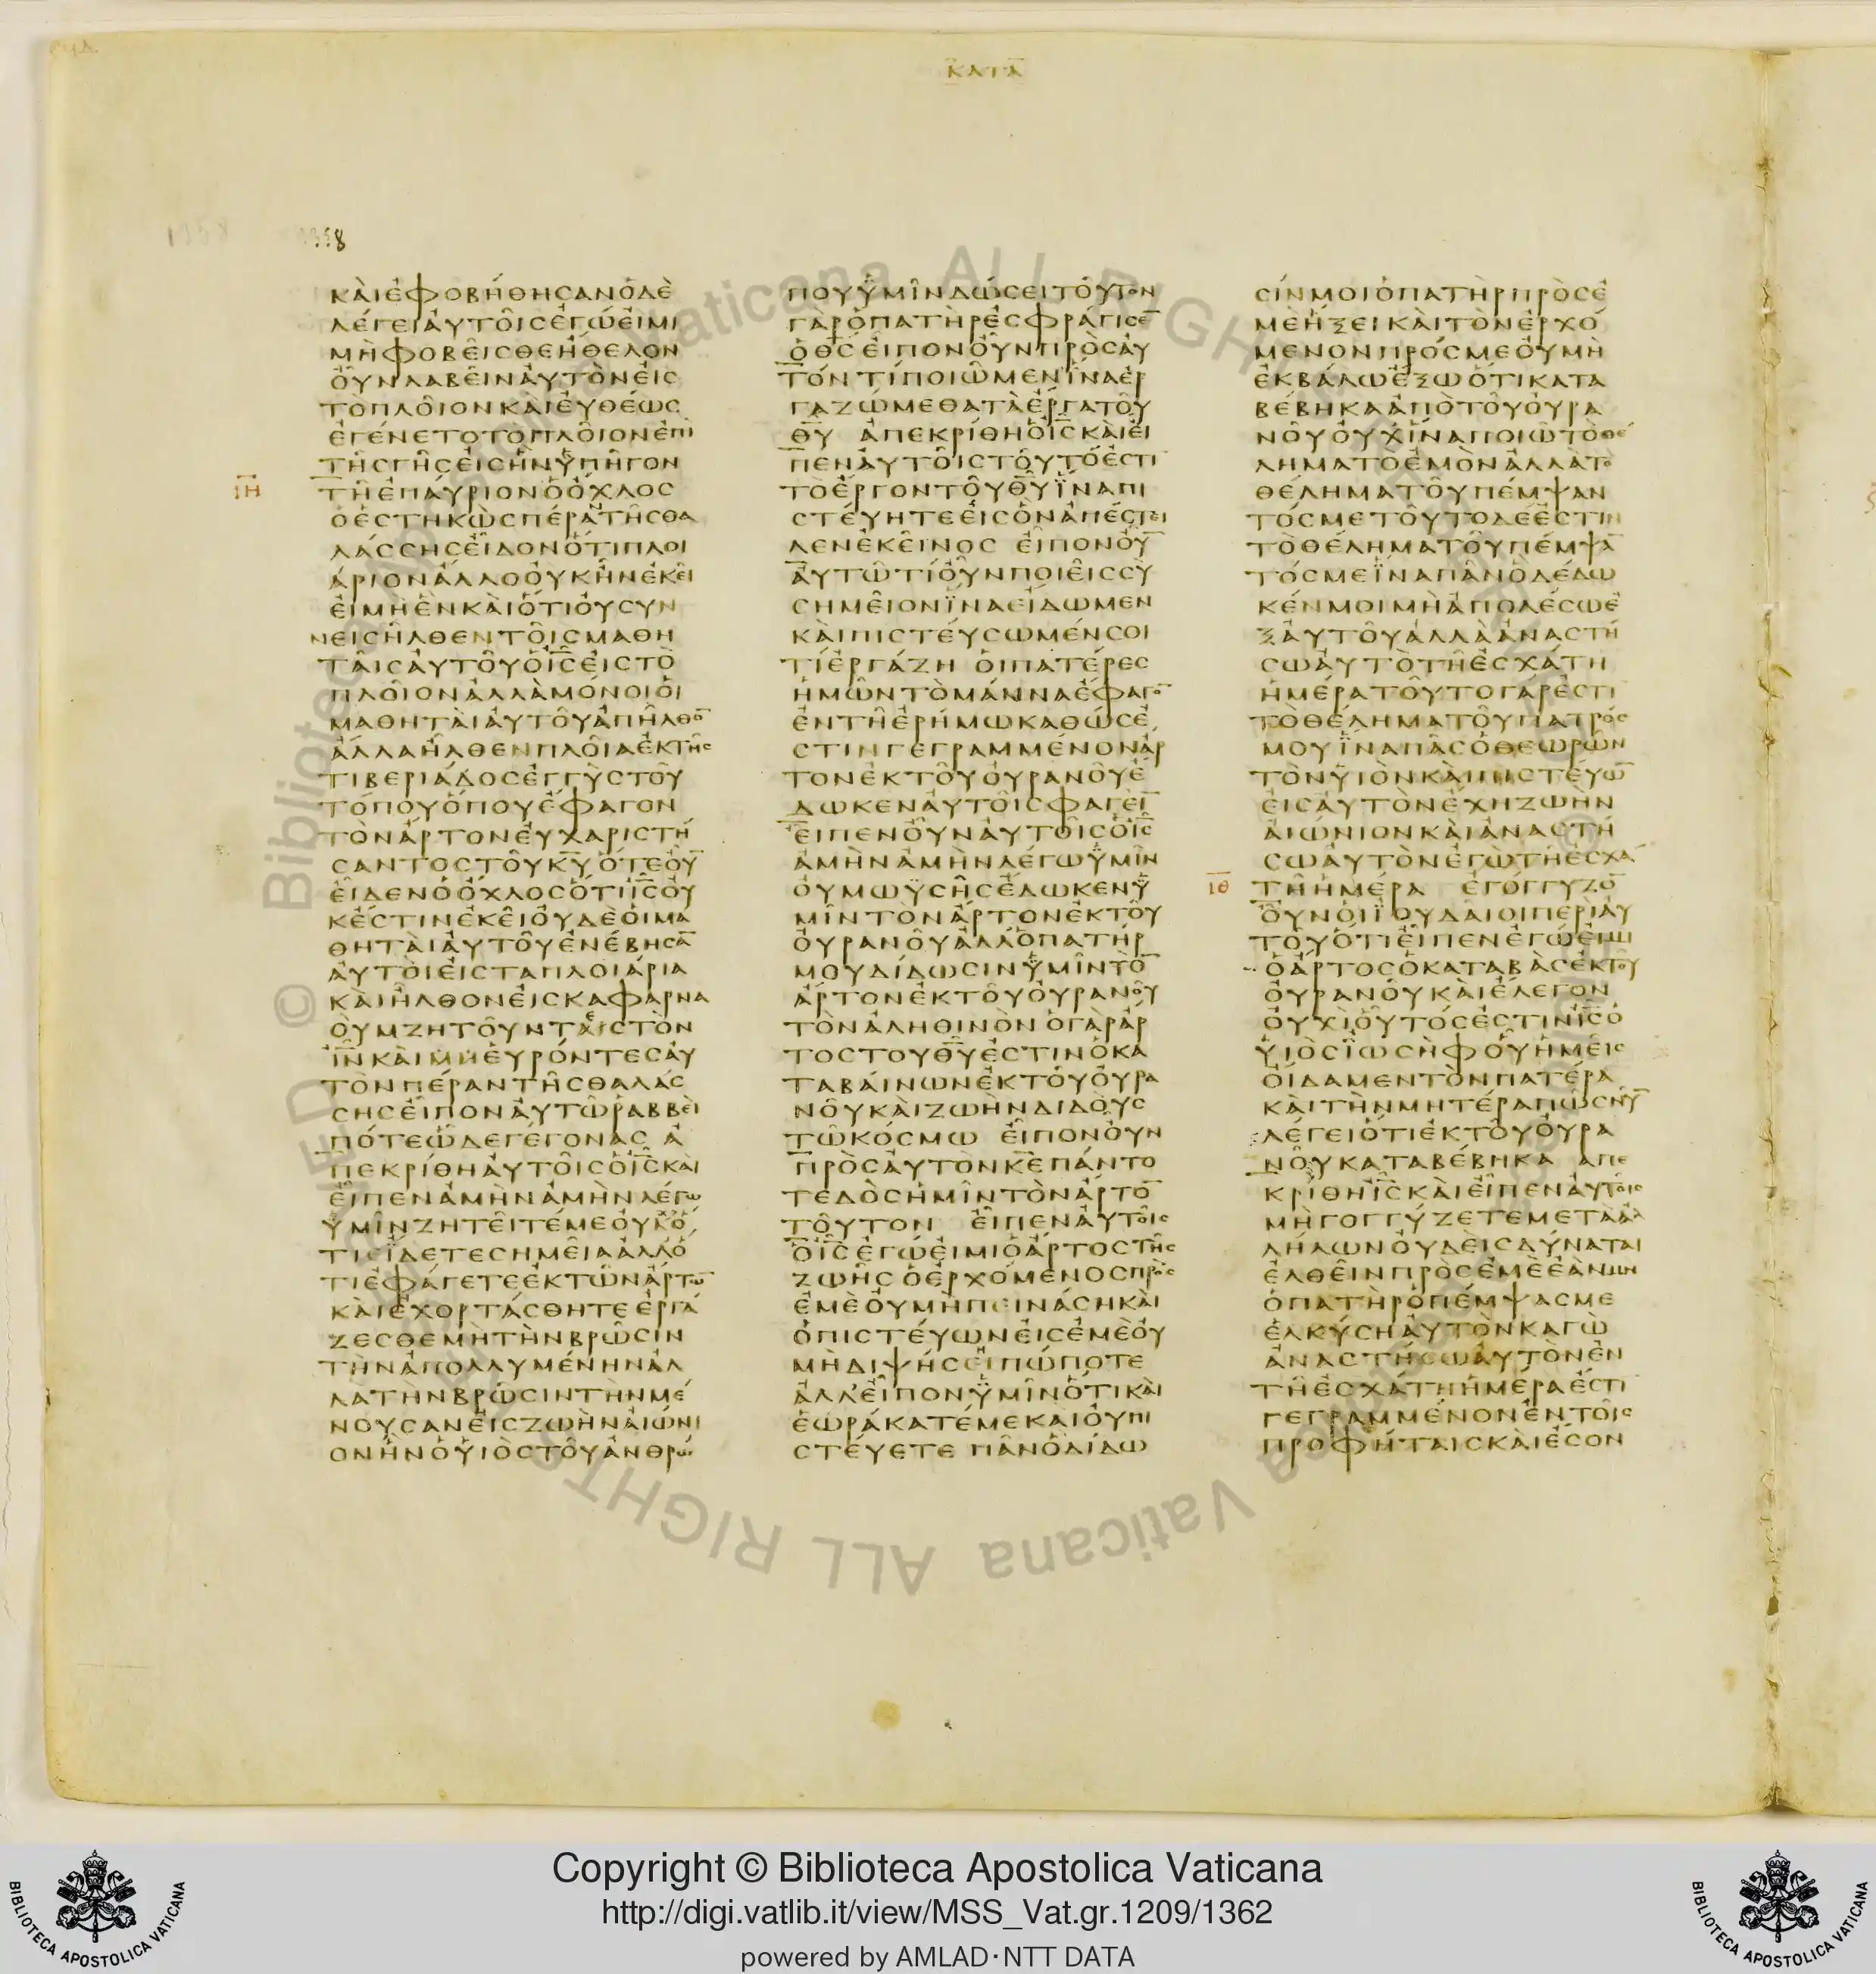 ΚΑΤΑ
1358
ΚΑΙΕΦΟΒΗΘΗϹΑΝΟΔΕ
ΛΕΓΕΙΑΥΤΟΙϹΕΓΩΕΙΜΙ
ΜΗΦΟΒΕΙϹΘΕΗΘΕΛΟΝ
ΟΥΝΛΑΒΕΙΝΑΥΤΟΝΕΙϹ
ΤΟΠΛΟΙΟΝΚΑΙΕΥΘΕΩϹ
ΕΓΕΝΕΤΟΤΟΠΛΟΙΟΝΕΠΙ
ΤΗϹΓΗϹΕΙϹΗΝΥΠΗΓΟΝ
ΙΗ ΤΗΕΠΑΥΡΙΟΝΟΟΧΛΟϹ
ΟΕϹΤΗΚΩϹΠΕΡΑΤΗϹΘΑ
ΛΑϹϹΗϹΕΙΔΟΝΟΤΙΠΛΟΙ
ΑΡΙΟΝΑΛΛΟΟΥΚΗΝΕΚΕΙ
ΕΙΜΗΕΝΚΑΙΟΤΙΟΥϹΥΝ
ΝΕΙϹΗΛΘΕΝΤΟΙϹΜΑΘΗ
ΤΑΙϹΑΥΤΟΥΟΙϹ̅ΕΙϹΤΟ
ΠΛΟΙΟΝΑΛΛΑΜΟΝΟΙΟΙ
ΜΑΘΗΤΑΙΑΥΤΟΥΑΠΗΛΘΟ̅
ΑΛΛΑΗΛΘΕΝΠΛΟΙΑΕΚΤΗϹ
ΤΙΒΕΡΙΑΔΟϹΕΓΓΥϹΤΟΥ
ΤΟΠΟΥΟΠΟΥΕΦΑΓΟΝ
ΤΟΝΑΡΤΟΝΕΥΧΑΡΙϹΤΗ
ϹΑΝΤΟϹΤΟΥΚ̅Υ̅ΟΤΕΟΥ̅
ΕΙΔΕΝΟΟΧΛΟϹΟΤΙΙ̅Ϲ̅ΟΥ
ΚΕϹΤΙΝΕΚΕΙΟΥΔΕΟΙΜΑ
ΘΗΤΑΙΑΥΤΟΥΕΝΕΒΗϹΑ̅
ΑΥΤΟΙΕΙϹΤΑΠΛΟΙΑΡΙΑ
ΚΑΙΗΛΘΟΝΕΙϹΚΑΦΑΡΝΑ
ΟΥΜΖΗΤΟΥΝΤΕϹΤΟΝ
Ι̅Ν̅ΚΑΙΕΥΡΟΝΤΕϹΑΥ
ΤΟΝΠΕΡΑΝΤΗϹΘΑΛΑϹ
ϹΗϹΕΙΠΟΝΑΥΤΩΡΑΒΒΕΙ
ΠΟΤΕΩΔΕΓΕΓΟΝΑϹ Α
ΠΕΚΡΙΘΗΑΥΤΟΙϹΟΙ̅Ϲ̅ΚΑΙ
ΕΙΠΕΝΑΜΗΝΑΜΗΝΛΕΓΩ
ΥΜΙΝΖΗΤΕΙΤΕΜΕΟΥΧΟ
ΤΙΕΙΔΕΤΕϹΗΜΕΙΑΑΛΛΟ
ΤΙΕΦΑΓΕΤΕΕΚΤΩΝΑΡΤΩ̅
ΚΑΙΕΧΟΡΤΑϹΘΗΤΕΕΡΓΑ
ΖΕϹΘΕΜΗΤΗΝΒΡΩϹΙΝ
ΤΗΝΑΠΟΛΛΥΜΕΝΗΝΑΛ
ΛΑΤΗΝΒΡΩϹΙΝΤΗΝΜΕ
ΝΟΥϹΑΝΕΙϹΖΩΗΝΑΙΩΝΙ
ΟΝΗΝΟΥΙΟϹΤΟΥΑΝΘΡΩ
ΠΟΥΫΜΙΝΔΩϹΕΙΤΟΥΤΟΝ
ΓΑΡΟΠΑΤΗΡΕϹΦΡΑΓΙϹΕ̅
ΟΘ̅Ϲ̅ΕΙΠΟΝΟΥΝΠΡΟϹΑΥ
ΤΟΝΤΙΠΟΙΩΜΕΝΙΝΑΕΡ
ΓΑΖΩΜΕΘΑΤΑΕΡΓΑΤΟΥ
Θ̅Υ̅ ΑΠΕΚΡΙΘΗΟΙ̅Ϲ̅ΚΑΙΕΙ
ΠΕΝΑΥΤΟΙϹΤΟΥΤΟΕϹΤΙ
ΤΟΕΡΓΟΝΤΟΥΘ̅Υ̅ΪΝΑΠΙ
ϹΤΕΥΗΤΕΕΙϹΟΝΑΠΕϹΤΕΙ
ΛΕΝΕΚΕΙΝΟϹ ΕΙΠΟΝΟΥ̅
ΑΥΤΩΤΙΟΥΝΠΟΙΕΙϹϹΥ
ϹΗΜΕΙΟΝΪΝΑΕΙΔΩΜΕΝ
ΚΑΙΠΙϹΤΕΥϹΩΜΕΝϹΟΙ
ΤΙΕΡΓΑΖΗ ΟΙΠΑΤΕΡΕϹ
ΗΜΩΝΤΟΜΑΝΝΑΕΦΑΓΟ̅
ΕΝΤΗΕΡΗΜΩΚΑΘΩϹΕ
ϹΤΙΝΓΕΓΡΑΜΜΕΝΟΝΑΡ
ΤΟΝΕΚΤΟΥΟΥΡΑΝΟΥΕ
ΔΩΚΕΝΑΥΤΟΙϹΦΑΓΕΙ̅
ΕΙΠΕΝΟΥΝΑΥΤΟΙϹΟΙ̅Ϲ̅
ΑΜΗΝΑΜΗΝΛΕΓΩΫΜΙΝ
ΟΥΜΩΫϹΗϹΕΔΩΚΕΝΫ
ΜΙΝΤΟΝΑΡΤΟΝΕΚΤΟΥ
ΟΥΡΑΝΟΥΑΛΛΟΠΑΤΗΡ
ΜΟΥΔΙΔΩϹΙΝΫΜΙΝΤΟ̅
ΑΡΤΟΝΕΚΤΟΥΟΥΡΑΝΟΥ
ΤΟΝΑΛΗΘΙΝΟΝΟΓΑΡΑΡ
ΤΟϹΤΟΥΘ̅Υ̅ΕϹΤΙΝΟΚΑ
ΤΑΒΑΙΝΩΝΕΚΤΟΥΟΥΡΑ
ΝΟΥΚΑΙΖΩΗΝΔΙΔΟΥϹ
ΤΩΚΟϹΜΩ ΕΙΠΟΝΟΥΝ
ΠΡΟϹΑΥΤΟΝΚ̅Ε̅ΠΑΝΤΟ
ΤΕΔΟϹΗΜΙΝΤΟΝΑΡΤΟ̅
ΤΟΥΤΟΝ ΕΙΠΕΝΑΥΤΟΙϹ
ΟΙ̅Ϲ̅ΕΓΩΕΙΜΙΟΑΡΤΟϹΤΗϹ
ΖΩΗϹΟΕΡΧΟΜΕΝΟϹΠΡΟϹ
ΕΜΕΟΥΜΗΠΕΙΝΑϹΗΚΑΙ
ΟΠΙϹΤΕΥΩΝΕΙϹΕΜΕΟΥ
ΜΗΔΙΨΗϹΕΙΠΩΠΟΤΕ
ΑΛΛΕΙΠΟΝΫΜΙΝΟΤΙΚΑΙ
ΕΩΡΑΚΑΤΕΜΕΚΑΙΟΥΠΙ
ϹΤΕΥΕΤΕ ΠΑΝΟΔΙΔΩ
ϹΙΝΜΟΙΟΠΑΤΗΡΠΡΟϹΕ
ΜΕΗΞΕΙΚΑΙΤΟΝΕΡΧΟ
ΜΕΝΟΝΠΡΟϹΜΕΟΥΜΗ
ΕΚΒΑΛΩΕΞΩΟΤΙΚΑΤΑ
ΒΕΒΗΚΑΑΠΟΤΟΥΟΥΡΑ
ΝΟΥΟΥΧΙΝΑΠΟΙΩΤΟΘΕ
ΛΗΜΑΤΟΕΜΟΝΑΛΛΑΤΟ
ΘΕΛΗΜΑΤΟΥΠΕΜΨΑΝ
ΤΟϹΜΕΤΟΥΤΟΔΕΕϹΤΙΝ
ΤΟΘΕΛΗΜΑΤΟΥΠΕΜΨΑ̅
ΤΟϹΜΕΪΝΑΠΑΝΟΔΕΔΩ
ΚΕΝΜΟΙΜΗΑΠΟΛΕϹΩΕ
ΞΑΥΤΟΥΑΛΛΑΑΝΑϹΤΗ
ϹΩΑΥΤΟΤΗΕϹΧΑΤΗ
ΗΜΕΡΑΤΟΥΤΟΓΑΡΕϹΤΙ
ΤΟΘΕΛΗΜΑΤΟΥΠΑΤΡΟϹ
ΜΟΥΪΝΑΠΑϹΟΘΕΩΡΩΝ
ΤΟΝΥΙΟΝΚΑΙΠΙϹΤΕΥΩ̅
ΕΙϹΑΥΤΟΝΕΧΗΖΩΗΝ
ΑΙΩΝΙΟΝΚΑΙΑΝΑϹΤΗ
ϹΩΑΥΤΟΝΕΓΩΤΗΕϹΧΑ
ΙΘ ΤΗΗΜΕΡΑ ΕΓΟΓΓΥΖΟ̅
ΟΥΝΟΙΪΟΥΔΑΙΟΙΠΕΡΙΑΥ
ΤΟΥΟΤΙΕΙΠΕΝΕΓΩΕΙΜΙ
ΟΑΡΤΟϹΟΚΑΤΑΒΑϹΕΚΤΟΥ
ΟΥΡΑΝΟΥΚΑΙΕΛΕΓΟΝ
ΟΥΧΙΟΥΤΟϹΕϹΤΙΝΙ̅Ϲ̅Ο
ΥΙΟϹΪΩϹΗΦΟΥΗΜΕΙϹ
ΟΙΔΑΜΕΝΤΟΝΠΑΤΕΡΑ
ΚΑΙΤΗΝΜΗΤΕΡΑΠΩϹΝΥ̅
ΛΕΓΕΙΟΤΙΕΚΤΟΥΟΥΡΑ
ΝΟΥΚΑΤΑΒΕΒΗΚΑ ΑΠΕ
ΚΡΙΘΗΙ̅Ϲ̅ΚΑΙΕΙΠΕΝΑΥΤΟΙϹ
ΜΗΓΟΓΓΥΖΕΤΕΜΕΤΑΑΛ
ΛΗΛΩΝΟΥΔΕΙϹΔΥΝΑΤΑΙ
ΕΛΘΕΙΝΠΡΟϹΕΜΕΕΑΝΜΗ
ΟΠΑΤΗΡΟΠΕΜΨΑϹΜΕ
ΕΛΚΥϹΗΑΥΤΟΝΚΑΓΩ
ΑΝΑϹΤΗϹΩΑΥΤΟΝΕΝ
ΤΗΕϹΧΑΤΗΗΜΕΡΑΕϹΤΙ
ΓΕΓΡΑΜΜΕΝΟΝΕΝΤΟΙϹ
ΠΡΟΦΗΤΑΙϹΚΑΙΕϹΟΝ
© Biblioteca Apostolica Vaticana ALL RIGHTS RESERVED
Copyright © Biblioteca Apostolica Vaticana
http://digi.vatlib.it/view/MSS_Vat.gr.1209/1362
powered by AMLAD·NTT DATA
BIBLIOTECA APOSTOLICA VATICANA
BIBLIOTECA APOSTOLICA VATICANA